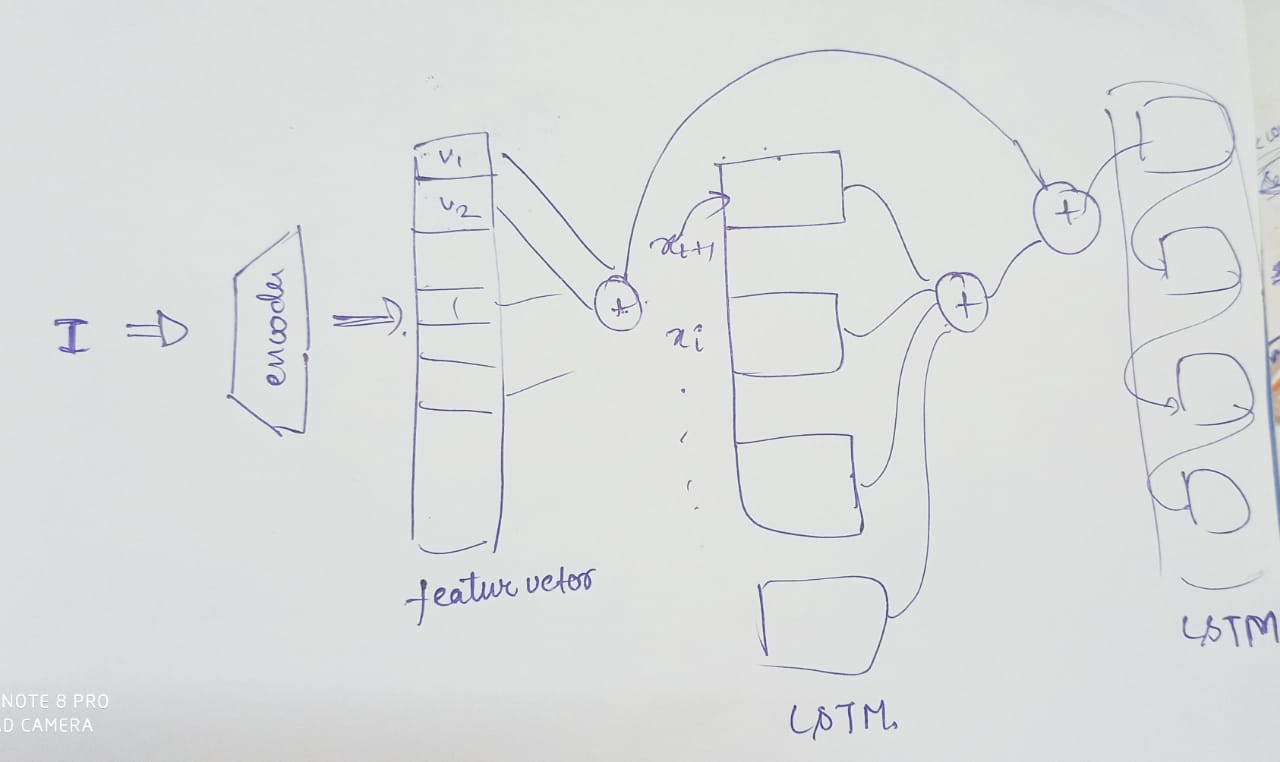 I
encoder
v1
v2
+
featur vetor
xt+1
xi
+
LSTM.
+
LSTM
NOTE 8 PRO
AD CAMERA